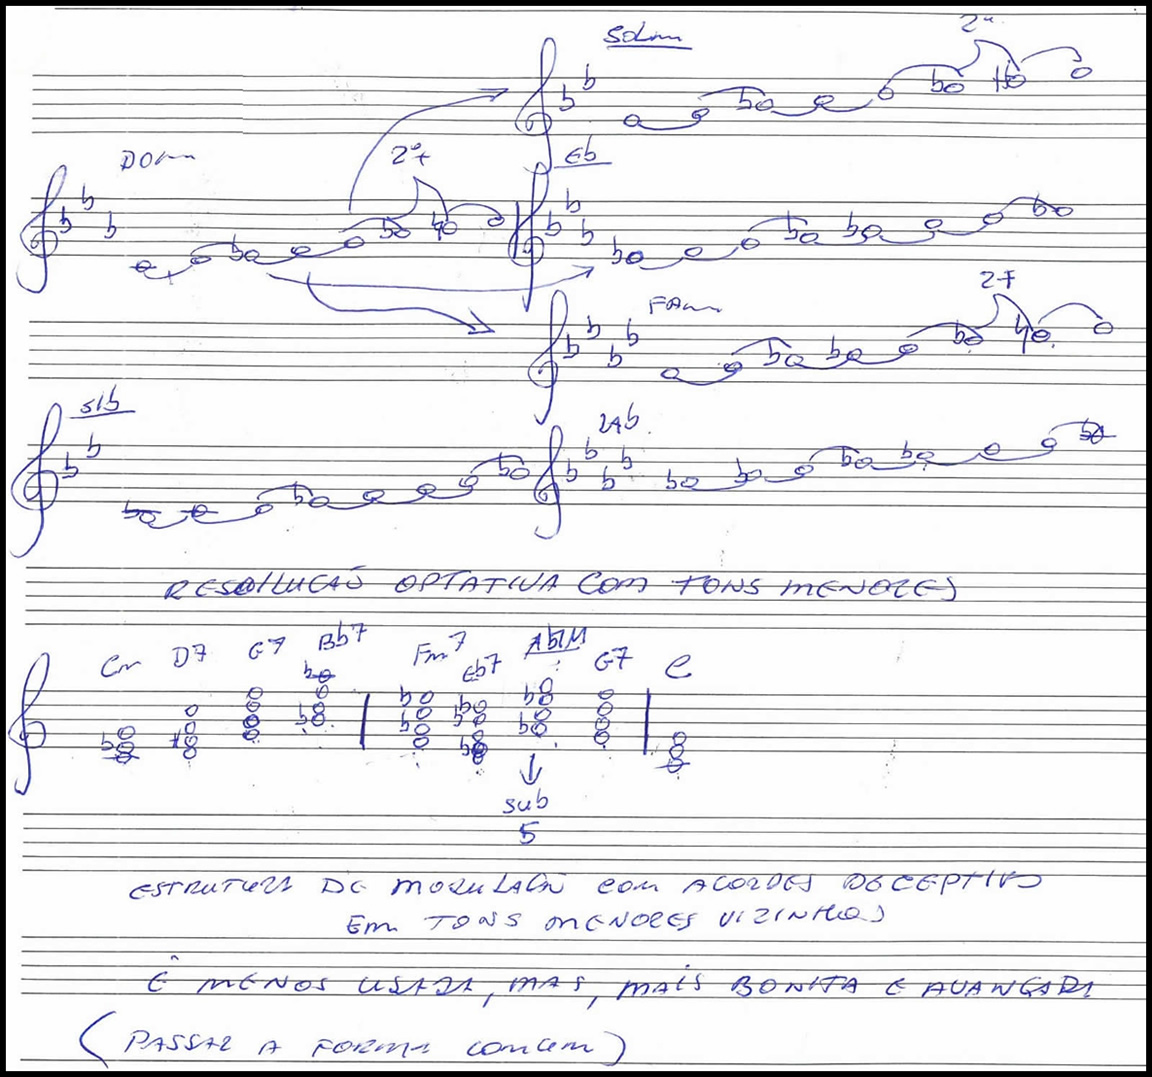 SOLm
2ª
DOm
2ª+
Eb
FAm
2+
SIb
LAb
RESOLUCAÕ OPTATIVA COM TONS MENORES
Cm D7 G7 Bb7 Fm7 Eb7 Ab7M G7 C
sub
5
ESTRUTURA DE MODULAÇÃO COM ACORDES DECEPTIVO
Em TONS MENORES VIZINHOS
É MENOS USADA, MAS, MAÍS BONITA E AVANÇADA
(PASSAR A FORMA COMUM)